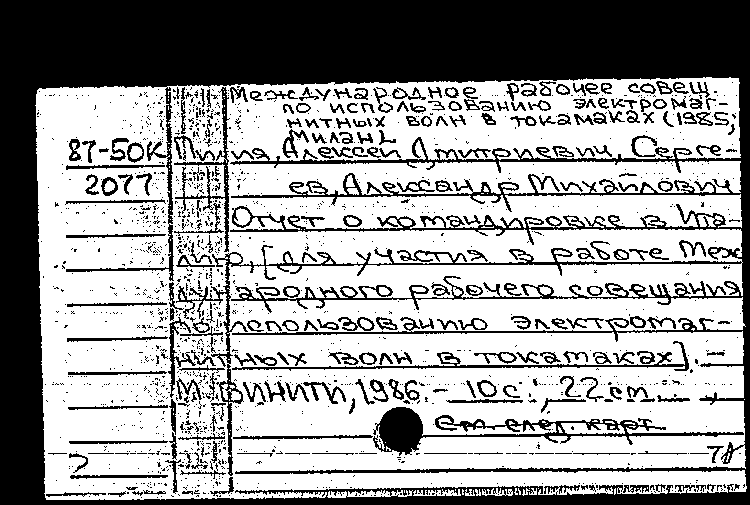 Международное рабочее совещ.
по использованию электромаг-
нитных волн в токамаках (1985;
Милан)
87-50К Пилия, Алексей Дмитриевич, Серге-
2077 ев, Александр Михайлович
Отчет о командировке в Ита-
лию, [для участия в работе Меж
дународного рабочего совещания
по использованию электромаг-
нитных волн в токамаках]. –
М ВИНИТИ, 1986. – 10 с.; 22 см
См. след. карт